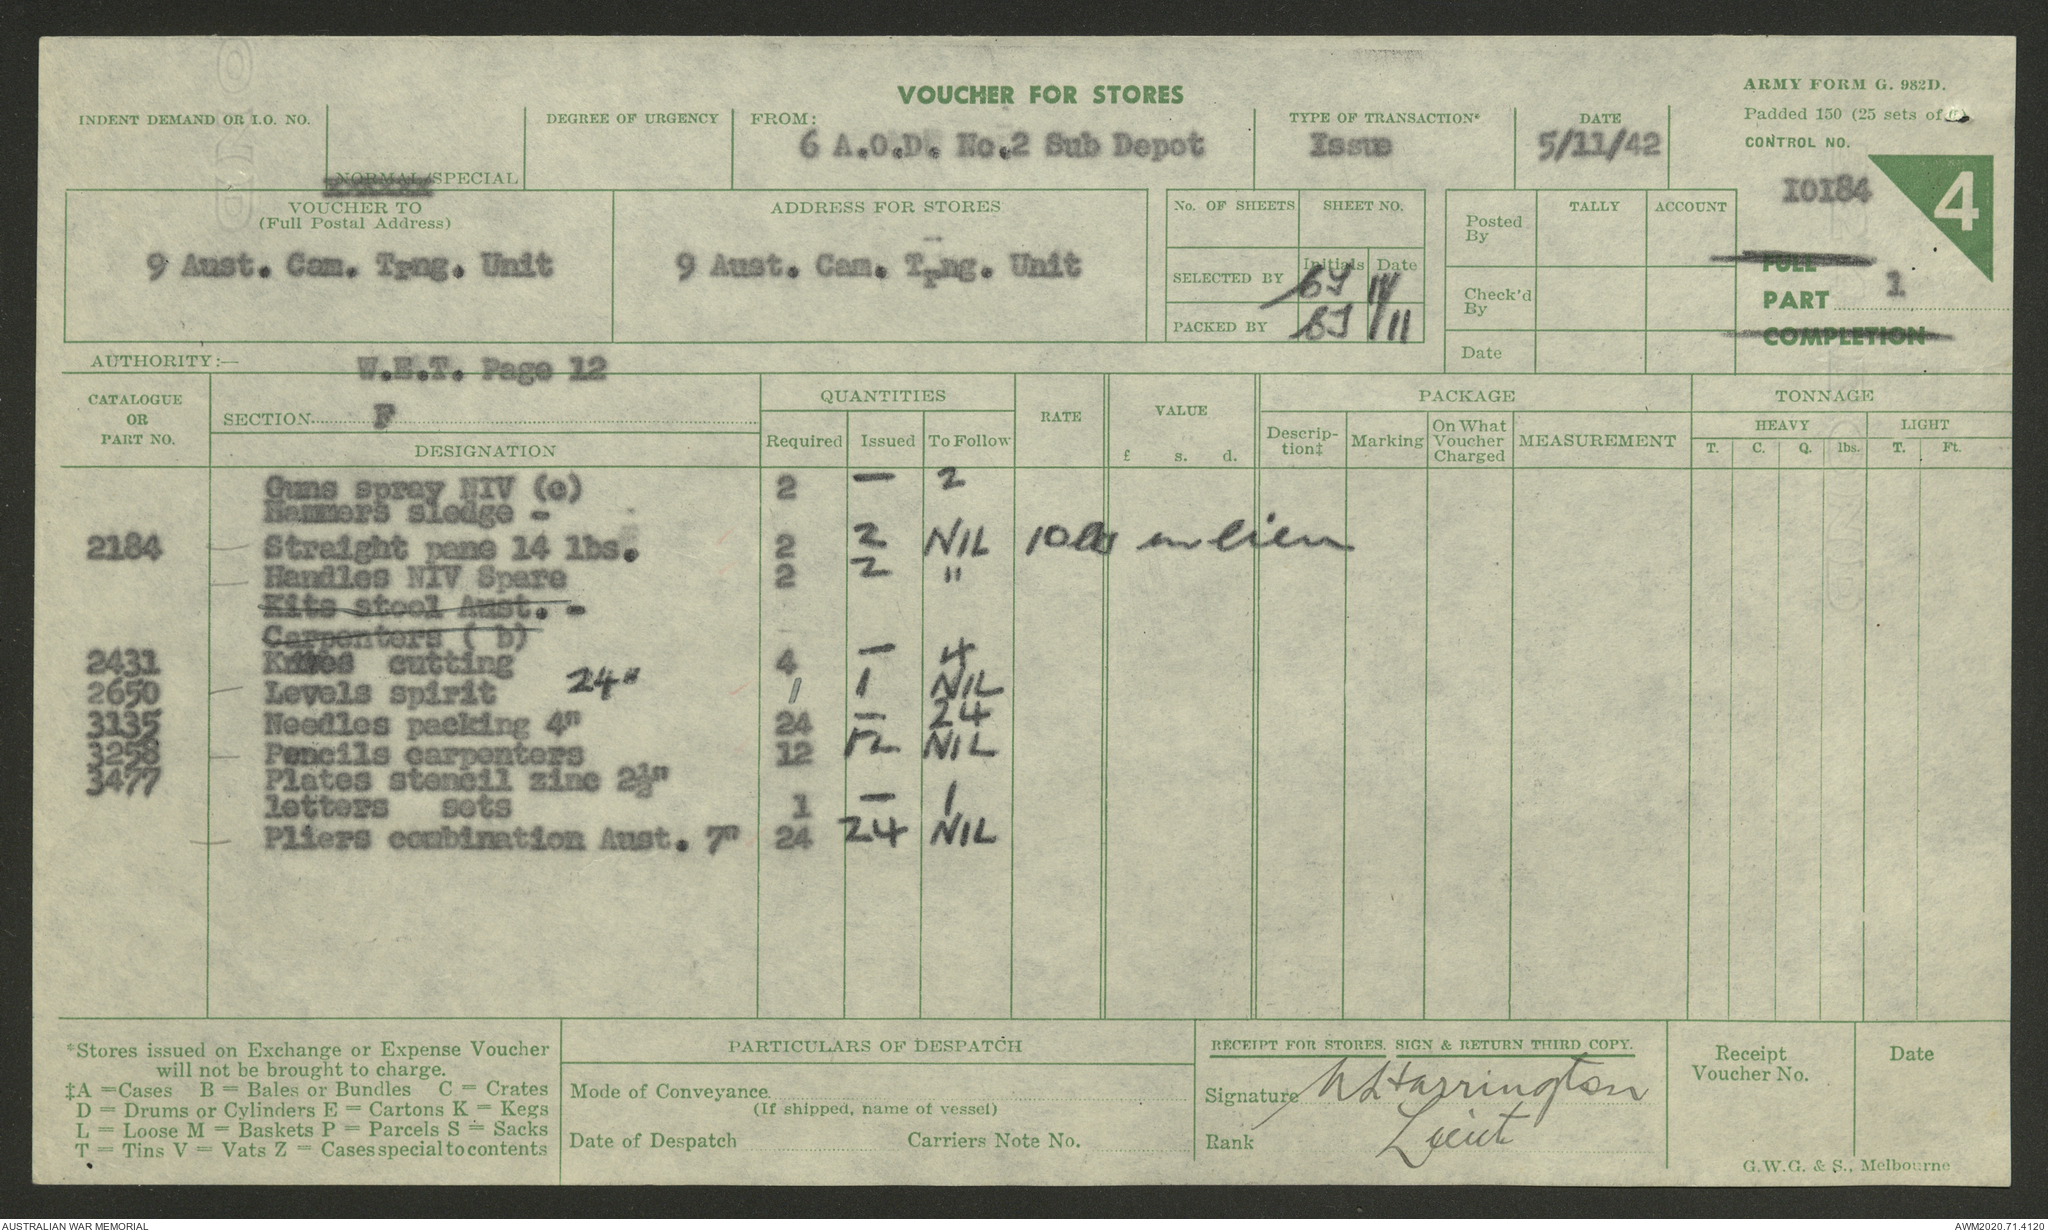 VOUCHER FOR STORES
ARMY FORM G. 982D.
Padded 150 (25 sets of
INDENT DEMAND OR I.O. NO.
NORMAL/SPECIAL
DEGREE OF URGENCY
FROM:
6 A.O.D. No.2 Sub Depot
TYPE OF TRANSACTION*
Issue
DATE
5/11/42
CONTROL NO.
10184
4
VOUCHER TO
(Full Postal Address)
9 Aust. Cam. Trng. Unit
ADDRESS FOR STORES
9 Aust. Cam. Trng. Unit
No. OF SHEETS
SHEET NO.
Initials Date
SELECTED BY
PACKED BY
TALLY
ACCOUNT
Posted By
Check'd By
Date
FULL
PART 1
COMPLETION
AUTHORITY:— W.E.T. Page 12
CATALOGUE
OR
PART NO.
SECTION F
DESIGNATION
QUANTITIES
Required Issued To Follow
RATE
VALUE
£ s. d.
PACKAGE
Descrip-
tion‡
Marking
On What
Voucher
Charged
MEASUREMENT
TONNAGE
HEAVY
LIGHT
T. C. Q. lbs. T. Ft.
Guns spray NIV (c) 2 — 2
Hammers sledge -
2184 — Straight pane 14 lbs. 2 2 NIL 10 lb in lieu
— Handles NIV Spare 2 2 "
Kits stool Aust. -
Carpenters ( b)
2431 Knives cutting 4 — 4
2650 — Levels spirit 24" 1 1 NIL
3135 Needles packing 4" 24 — 24
3258 — Pencils carpenters 12 12 NIL
3477 Plates stencil zinc 2½"
letters sets 1 — 1
— Pliers combination Aust. 7" 24 24 NIL
*Stores issued on Exchange or Expense Voucher
will not be brought to charge.
‡A =Cases B = Bales or Bundles C = Crates
D = Drums or Cylinders E = Cartons K = Kegs
L = Loose M = Baskets P = Parcels S = Sacks
T = Tins V = Vats Z = Cases special to contents
PARTICULARS OF DESPATCH
Mode of Conveyance
(If shipped, name of vessel)
Date of Despatch Carriers Note No.
RECEIPT FOR STORES. SIGN & RETURN THIRD COPY.
Signature Harrington
Rank Lieut
Receipt
Voucher No.
Date
G.W.G. & S., Melbourne
AUSTRALIAN WAR MEMORIAL
AWM2020.71.4120